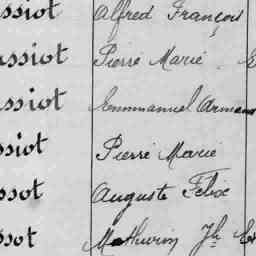 ssiot Alfred François
assiot Pierre Marie
ssiot Emmanuel Arman
ssiot Pierre Marie
ssot Auguste Félix
ssot Mathurin Jh